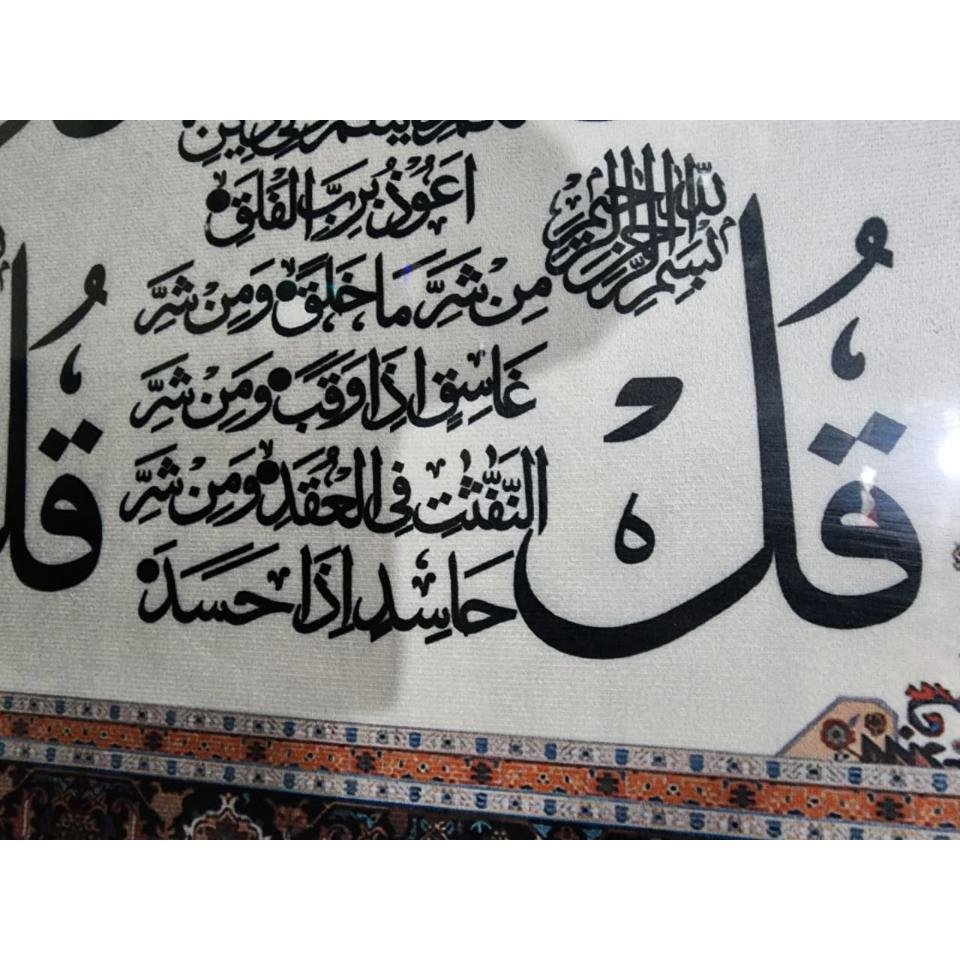 لكم دينكم ولي دين
بسم الله الرحمن الرحيم
قُلْ
اَعُوْذُ بِرَبِّ الْفَلَقِ
مِنْ شَرِّ مَا خَلَقَ وَمِنْ شَرِّ
غَاسِقٍ اِذَا وَقَبَ وَمِنْ شَرِّ
النَّفّٰثٰتِ فِى الْعُقَدِ وَمِنْ شَرِّ
حَاسِدٍ اِذَا حَسَدَ
قُل